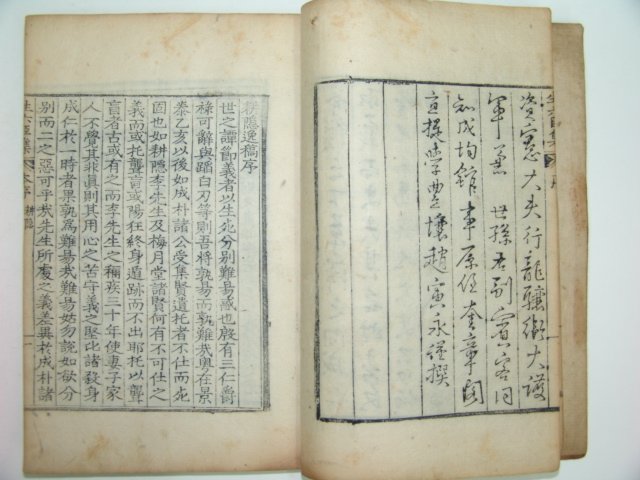 生六臣集 序
資憲大夫行龍驤衛大護
軍兼 世孫右副賓客同
知成均館事原任奎章閣
直提學豊壤趙寅永謹撰
耕隱逸稿序
世之譚節義者以生死分別難易惑也殷有三仁爵
祿可辭與蹈白刃等則吾將孰易而孰難哉粤在景
泰乙亥以後如成朴諸公受集賢遺托者不仕而死
固也如耕隱李先生及梅月堂諸賢何有不可仕之
義而或托聾盲或陽狂終身遁跡而不出耶托以聾
盲者古或有之而李先生之稱疾三十年使妻子家
人不覺其非眞則其用心之苦守義之堅比諸殺身
成仁於一時者果孰爲難易哉難易姑勿說如欲分
別而二之惡可乎哉先生所處之義差異於成朴諸
生六臣集 序 耕隱 一